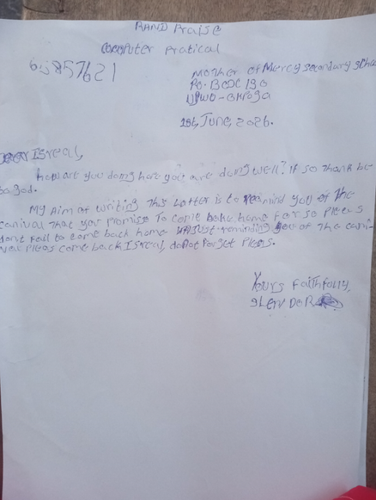 RAND Praise
Computer Pratical
65857621
Mother of Mercy secondary scho
PO-BOX 130
UKWO-
1st, JUNE, 2026.
Dear Isreal,
How are you doing hope you are doing well? if so thank be
to god.
My Aim of writing this Letter is to remind you of the
canival that you promise To come back home for so pleas
dont fail to come back home just reminding you of the cani-
val pleas come back Isreal, do not forget pleas.
Yours Faithfully,